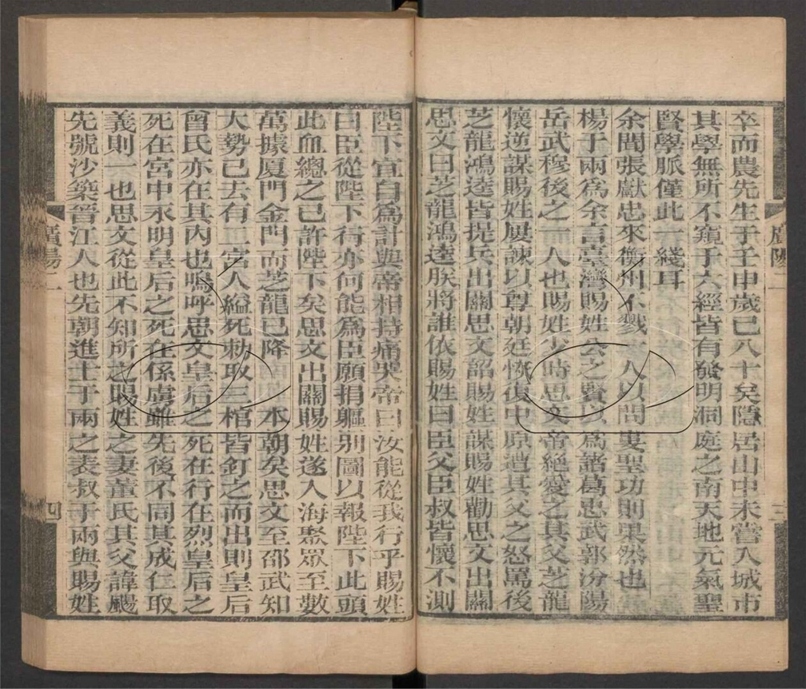 卒而農先生于壬申歲已八十矣隱居山中未嘗入城市
其學無所不窺于六經皆有發明洞庭之南天地元氣聖
賢學脈僅此一綫耳
余聞張獻忠來衡州不戮一人以問婁聖功則果然也
楊于兩爲余言臺灣賜姓公之賢以爲諸葛忠武郭汾陽
岳武穆後之一人也賜姓少時思文帝絶愛之其父芝龍
懷逆謀賜姓屢諫以尊朝廷恢復中原遭其父之怒罵後
芝龍鴻逵皆提兵出關思文詔賜姓謀賜姓勸思文出關
思文曰芝龍鴻逵朕將誰依賜姓曰臣父臣叔皆懷不測
陛下宜自爲計與帝相持痛哭帝曰汝能從我行乎賜姓
曰臣從陛下行亦何能爲臣願捐軀别圖以報陛下此頭
此血總之已許陛下矣思文出關賜姓遂入海聚眾至數
萬據厦門金門而芝龍已降 本朝矣思文至邵武知
大勢已去有二宮人縊死勅取三棺皆釘之而出則皇后
曾氏亦在其内也嗚呼思文皇后之死在行在烈皇后之
死在宮中永明皇后之死在係虜雖先後不同其成仁取
義則一也思文從此不知所之賜姓之妻董氏其父諱颺
先號沙築晉江人也先朝進士于兩之表叔于兩與賜姓
廣陽二
四
廣陽
三